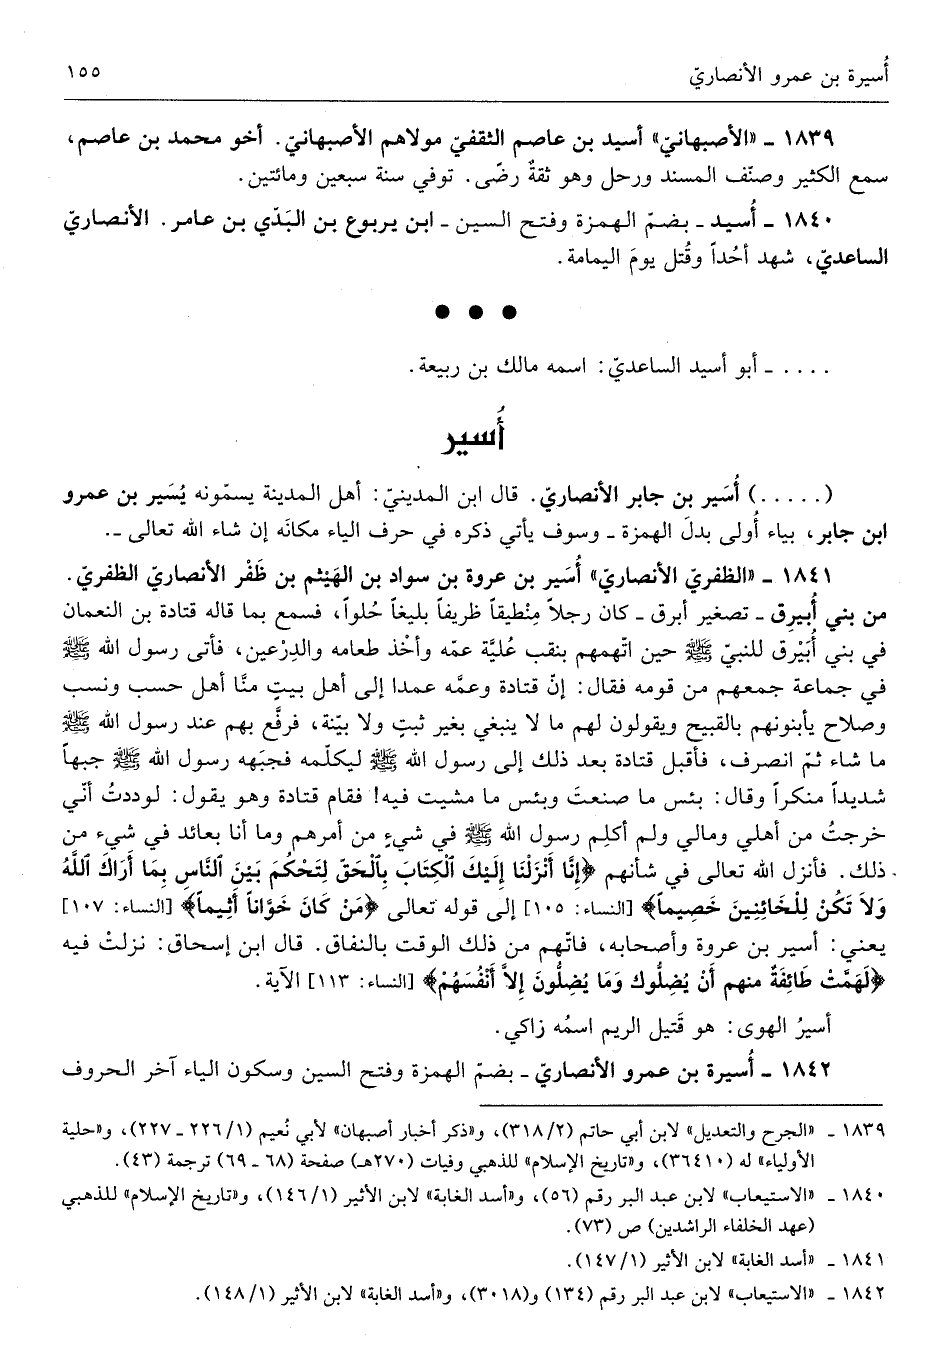 أُسيرة بن عمرو الأنصاريّ ١٥٥
١٨٣٩ ـ «الأصبهانيّ» أسيد بن عاصم الثقفيّ مولاهم الأصبهانيّ. أخو محمد بن عاصم،
سمع الكثير وصنّف المسند ورحل وهو ثقةٌ رضًى. توفي سنة سبعين ومائتين.
١٨٤٠ ـ أُسيد ـ بضمّ الهمزة وفتح السين ـ ابن يربوع بن البَدّي بن عامر. الأنصاريّ
الساعديّ، شهد أحُداً وقُتل يومَ اليمامة.
● ● ●
.... ـ أبو أسيد الساعديّ: اسمه مالك بن ربيعة.
أُسير
(.....) أُسَير بن جابر الأنصاريّ. قال ابن المدينيّ: أهل المدينة يسمّونه يُسَير بن عمرو
ابن جابر، بياء أولى بدلَ الهمزة ـ وسوف يأتي ذكره في حرف الياء مكانَه إن شاء الله تعالى ـ.
١٨٤١ ـ «الظفريّ الأنصاريّ» أُسَير بن عروة بن سواد بن الهَيْثم بن ظَفْر الأنصاريّ الظفريّ.
من بني أُبيرِق ـ تصغير أبرق ـ كان رجلاً مِنْطيقاً ظريفاً بليغاً حُلواً، فسمع بما قاله قتادة بن النعمان
في بني أُبَيْرق للنبيّ ﷺ حين اتّهمهم بنقب عُليَّة عمّه وأخْذ طعامه والدِرْعين، فأتى رسول الله ﷺ
في جماعة جمعهم من قومه فقال: إنّ قتادة وعمَّه عمدا إلى أهل بيتٍ منَّا أهل حسب ونسب
وصلاح يأبنونهم بالقبيح ويقولون لهم ما لا ينبغي بغير ثبتٍ ولا بيّنة، فرقَّع بهم عند رسول الله ﷺ
ما شاء ثمّ انصرف، فأقبل قتادة بعد ذلك إلى رسول الله ﷺ ليكلّمه فجبَهه رسول الله ﷺ جبهاً
شديداً منكراً وقال: بئس ما صنعتَ وبئس ما مشيت فيه! فقام قتادة وهو يقول: لوددتُ أنّي
خرجتُ من أهلي ومالي ولم أكلِم رسول الله ﷺ في شيءٍ من أمرهم وما أنا بعائد في شيء من
ذلك. فأنزل الله تعالى في شأنهم ﴿إِنَّا أَنْزَلْنَا إِلَيْكَ الْكِتَابَ بِالْحَقّ لِتَحْكُمَ بَيْنَ النَّاسِ بِمَا أَرَاكَ اللَّهُ
وَلَا تَكُنْ لِلْخَائِنِينَ خَصِيماً﴾ [النساء: ١٠٥] إلى قوله تعالى ﴿مَنْ كَانَ خَوَّاناً أَثِيماً﴾ [النساء: ١٠٧]
يعني: أسير بن عروة وأصحابه، فاتّهم من ذلك الوقت بالنفاق. قال ابن إسحاق: نزلتْ فيه
﴿لَهَمَّتْ طَائِفَةٌ منهم أَنْ يُضِلُّوكَ وَمَا يُضِلُّونَ إلاَّ أَنْفُسَهُمْ﴾ [النساء: ١١٣] الآية.
أسيرُ الهوى: هو قَتيل الريم اسمُه زاكي.
١٨٤٢ ـ أُسيرة بن عمرو الأنصاريّ ـ بضمّ الهمزة وفتح السين وسكون الياء آخر الحروف
١٨٣٩ ـ «الجرح والتعديل» لابن أبي حاتم (٢/ ٣١٨)، و«ذكر أخبار أصبهان» لأبي نُعيم (١/ ٢٢٦ ـ ٢٢٧)، و«حلية
الأولياء» له (٣٦٤١٠)، و«تاريخ الإسلام» للذهبي وفيات (٢٧٠هـ) صفحة (٦٨ ـ ٦٩) ترجمة (٤٣).
١٨٤٠ ـ «الاستيعاب» لابن عبد البر رقم (٥٦)، و«أسد الغابة» لابن الأثير (١/ ١٤٦)، و«تاريخ الإسلام» للذهبي
(عهد الخلفاء الراشدين) ص (٧٣).
١٨٤١ ـ «أسد الغابة» لابن الأثير (١/ ١٤٧).
١٨٤٢ ـ «الاستيعاب» لابن عبد البر رقم (١٣٤) و(٣٠١٨)، و«أسد الغابة» لابن الأثير (١/ ١٤٨).